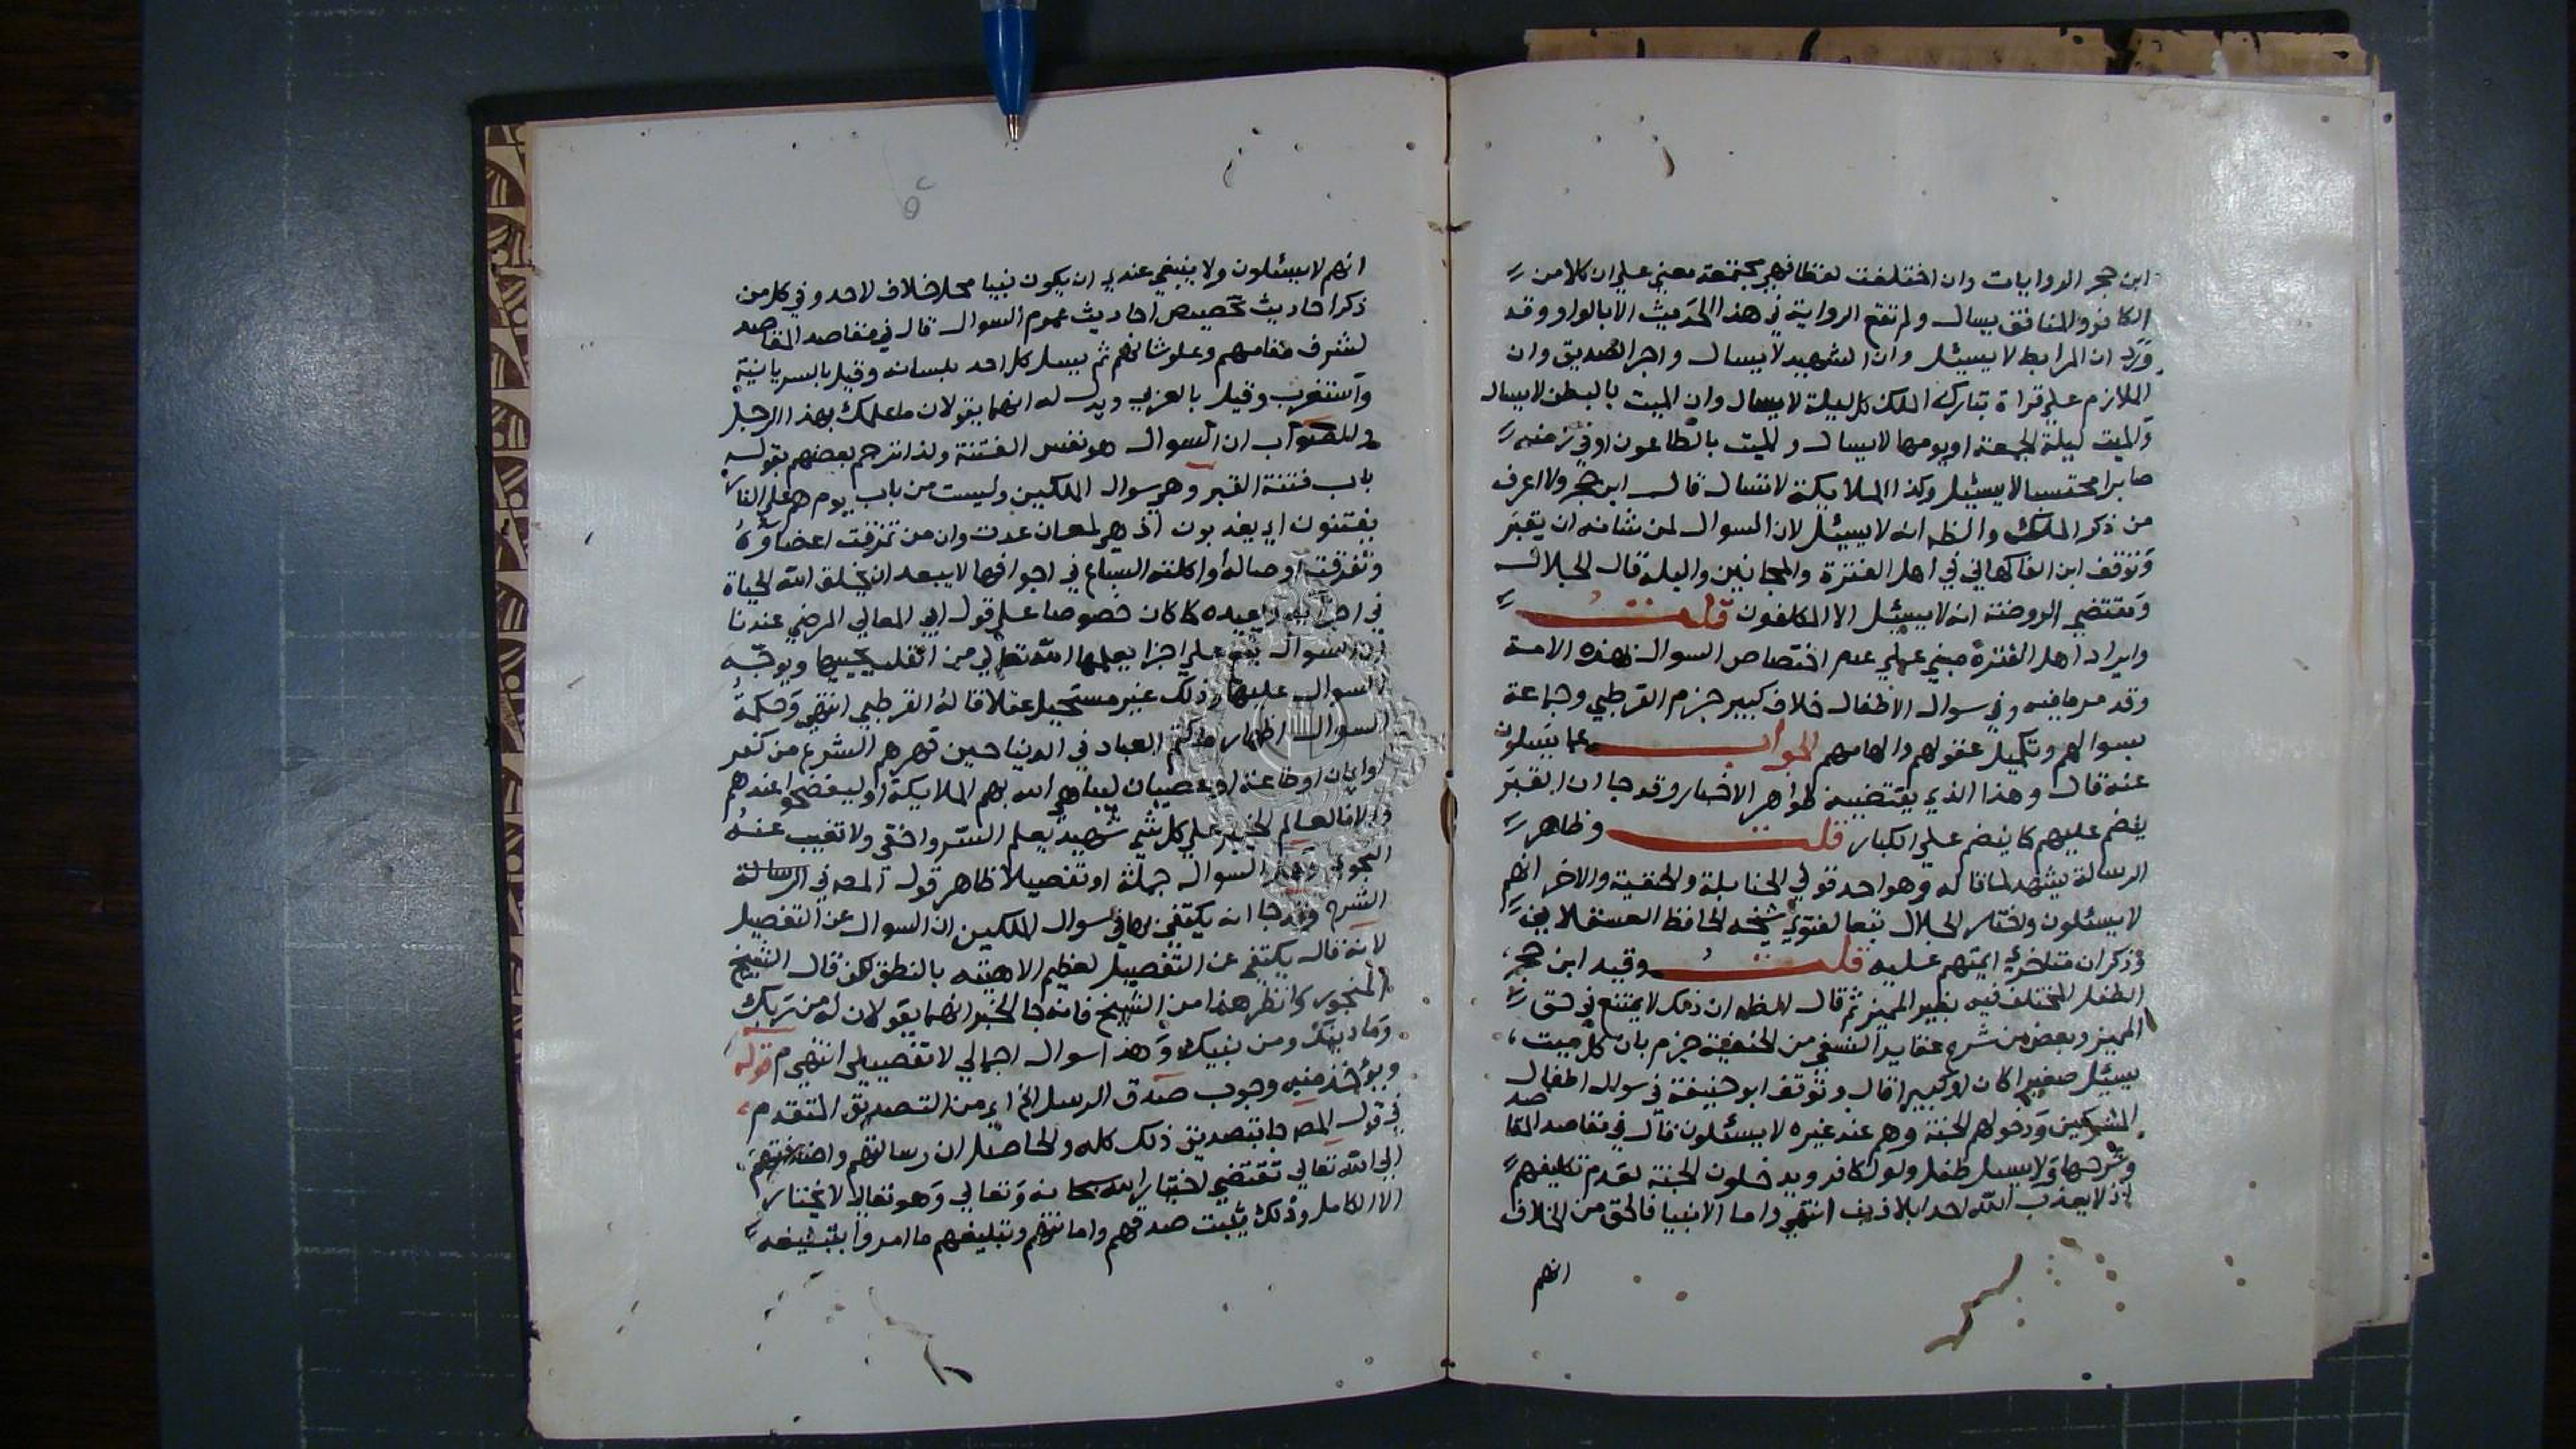 ابن حجر الروايات وان اختلفت لفظا فهي مجتمعة معني علي ان كلا من
الكافر والمنافق يسال ولم تقع الرواية في هذا الحديث الا بالواو وقد
ورد ان المرابط لا يسيئل وان الشهيد لا يسال واجر الصديق وان
الملازم علي قراة تبارك الملك كل ليلة لا يسال وان الميت بالبطن لا يسال
والميت ليلة الجمعة او يومها لا يسال والميت بالطاعون او في زمنه
صابرا محتسبا لا يسيئل وكذا الملايكة لا تسال قال ابن حجر ولا اعرف
من ذكر الملك والظه انه لا يسيئل لان السوال لمن شانه ان يقبر
وتوقف ابن الفاكهاني في اهل الفترة والمجانين والبله قال الجلال
ومقتضي الروضة انه لا يسيئل الا المكلفون قلت
وايراد اهل الفترة مبني علي عدم اختصاص السوال بهذه الامة
وقد مر ما فيه وفي سوال الاطفال خلاف كبير جزم القرطبي وجماعة
بسوالهم وتكميل عقولهم والهامهم الجواب عما يسيلون
عنه قال وهذا الذي يقتضيه ظواهر الاخبار وقد جا ان القبر
يضم عليهم كما يضم علي الكبار قلت وظاهر
الرسالة يشهد لما قاله وهو احد قولي الحنابلة والحنفية والاخر انهم
لا يسئلون واختار الجلال تبعا لفتوي شيخه الحافظ العسقلاني
وذكر ان متاخري ايمتهم عليه قلت وقيد ابن حجر
الطفل المختلف فيه بغير المميز ثم قال الظه ان ذلك لا يمتنع في حق
المميز وبعض من شرح عقايد النسفي من الحنفية جزم بان كل ميت
يسيئل صغيرا كان او كبيرا قال وتوقف ابو حنيفة في سوال اطفال
المشركين ودخولهم الجنة وهم عند غيره لا يسئلون قال في مقاصد المقاصد
وشرحها ولا يسيل طفل ولو كافر ويدخلون الجنة لعدم تكليفهم
اذ لا يعذب الله احدا بلا ذنب انتهي واما الانبيا فالحق من الخلاف
انهم
انهم لا يسئلون ولا ينبغي عندي ان يكون نبينا محل خلاف لاحد وفي كل من
ذكر احاديث تخصيص احاديث عموم السوال قال في مقاصد المقاصد
لشرف مقامهم وعلو شانهم ثم يسيل كل احد بلسانه وقيل بالسريانية
واستغرب وقيل بالعربي ويدل له انهما يقولان ما علمك بهذا الرجل
والصواب ان السوال هو نفس الفتنة ولذا ترجم بعضهم بقوله
باب فتنة القبر وهي سوال الملكين وليست من باب يوم هم علي النار
يفتنون اي يعذبون اذ هي لمعان عدت وان من تمزقت اعضاوه
وتفرقت اوصاله واكلته السباع في اجوافها لا يبعد ان يخلق الله الحياة
في اجزايه او يعيده كما كان خصوصا علي قول ابي المعالي المرضي عندنا
ان السوال يقع علي اجزا يعلمها الله تعالي من القلب يحييها ويوجه
السوال عليها وذلك غير مستحيل عقلا قاله القرطبي انتهي وحكمة
السوال اظهار ما كتم العباد في الدنيا حين قهرهم الشرع من كفر
او ايمان او طاعة او عصيان ليباهي الله بهم الملايكة او ليفضحوا عندهم
والا فالعالم الخبير علي كل شي شهيد يعلم السر واخفي ولا تغيب عنه
النجوي وهل السوال جملة او تفصيلا ظاهر قول المصه في الرسالة
الشرح وقد جا انه يكتفي بها في سوال الملكين ان السوال عن التفصيل
لانه قال يكتفي عن التفصيل لعظيم الاهبته بالنطق لكن قال الشيخ
المنجور وانظر هذا من الشيخ فانه جا الخبر انهما يقولان له من ربك
وما دينك ومن نبيك وهذا سوال اجمالي لا تفصيلي انتهي م قوله
ويؤخذ منه وجوب صدق الرسل الخ اي من التصديق المتقدم
في قول المصه جا بتصديق ذلك كله والحاصل ان رسالتهم واضافتهم
الي الله تعالي تقتضي اختيار الله سبحانه وتعالي وهو تعالي لا يختار
الا الكامل وذلك يثبت صدقهم وامانتهم وتبليغهم ما امروا بتبليغه